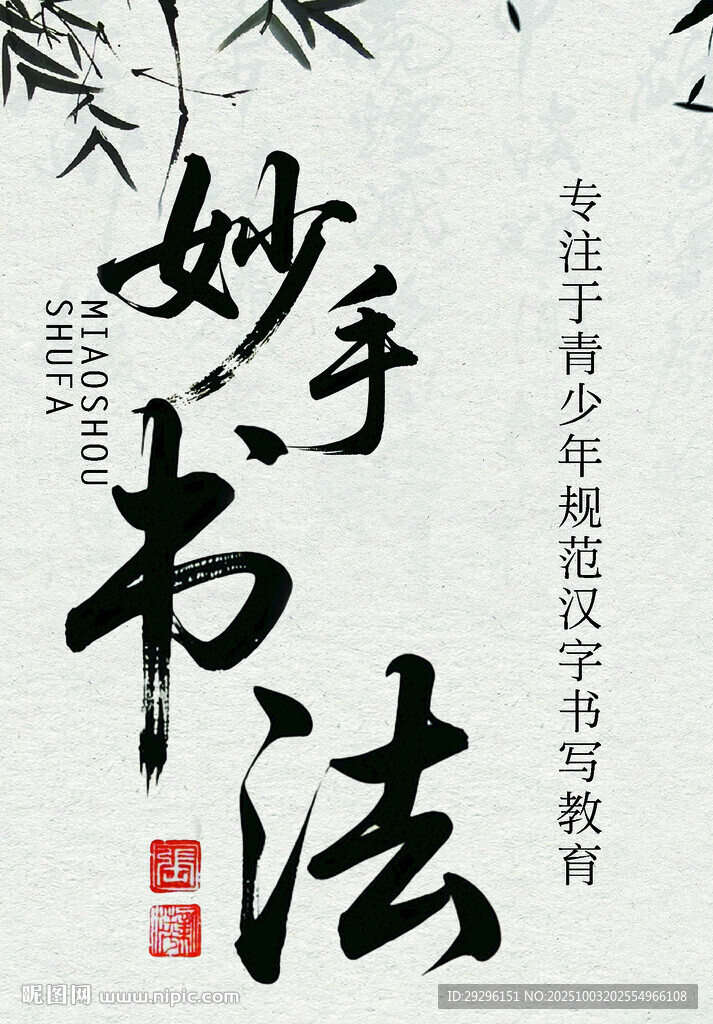 妙手
书
法
MIAOSHOU
SHUFA
专注于青少年规范汉字书写教育
昵图网 www.nipic.com
ID:29296151 NO:20251003202554966108